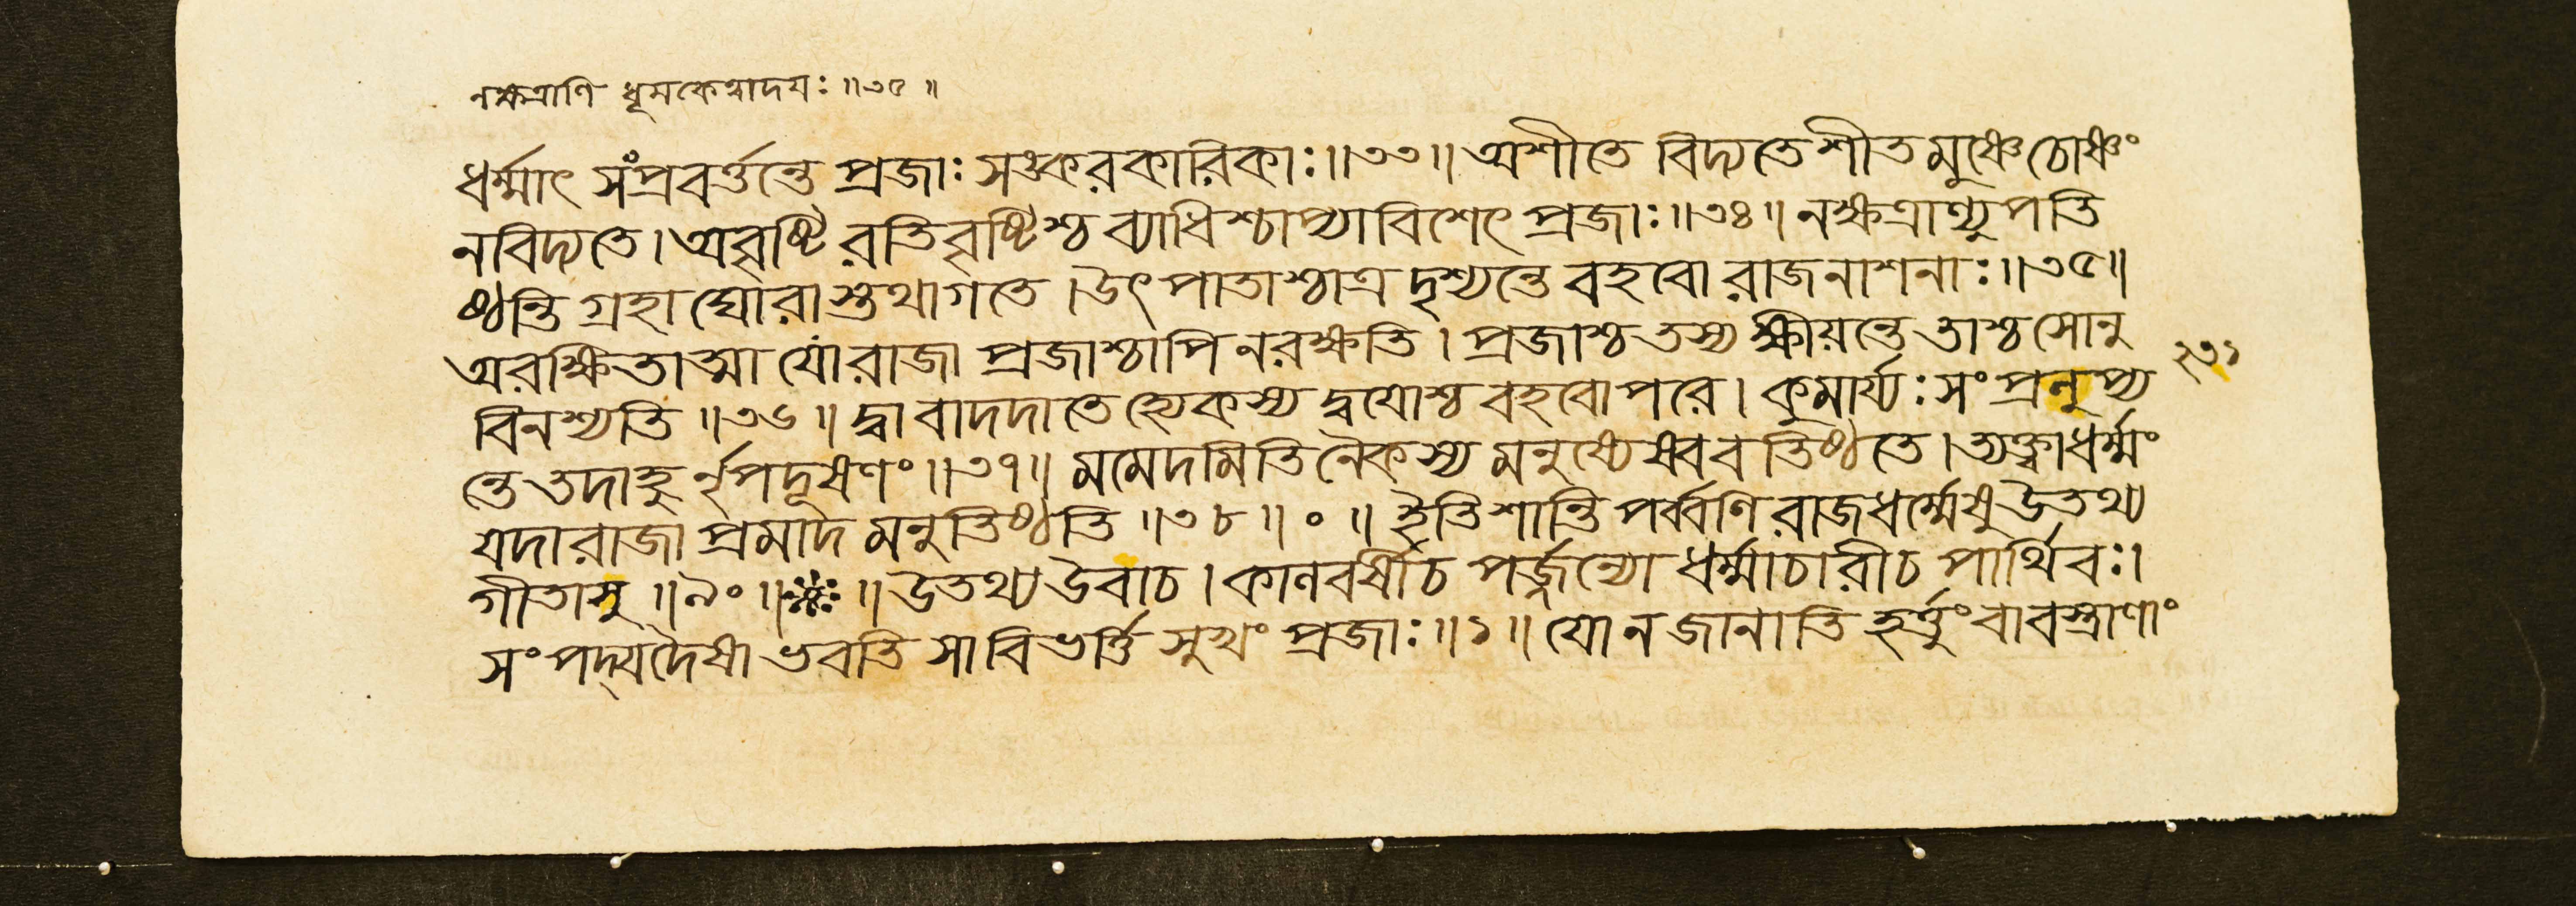 নক্ষত্রাণি ধূমকেত্বাদয়ঃ ॥৩৫॥
ধর্ম্মাৎ সংপ্রবর্ত্তন্তে প্রজাঃ সঙ্করকারিকাঃ ॥৩৩॥ অশীতে বিদ্যতে শীতমুষ্ণে চোষ্ণং
ন বিদ্যতে । অবৃষ্টিরতিবৃষ্টিশ্চ ব্যাধিশ্চাপ্যাবিশেৎ প্রজাঃ ॥৩৪॥ নক্ষত্রাণ্যুপতি
ষ্ঠন্তি গ্রহা ঘোরাস্তথাগতে । উৎপাতাশ্চাত্র দৃশ্যন্তে বহবো রাজনাশনাঃ ॥৩৫॥
অরক্ষিতাত্মা যো রাজা প্রজাশ্চাপি ন রক্ষতি । প্রজাশ্চ তস্য ক্ষীয়ন্তে তাশ্চ সোনু
২৩১
বিনশ্যতি ॥৩৬॥ দ্বাবাদদাতে হ্যেকস্য দ্বয়োশ্চ বহবোপরে । কুমার্য্যঃ সংপ্রলুপ্য
ন্তে তদাহুর্নৃপদূষণং ॥৩৭॥ মমেদমিতি নৈকস্য মনুষ্যেষ্ববতিষ্ঠতে । ত্যক্ত্বা ধর্ম্মং
যদা রাজা প্রমাদমনুতিষ্ঠতি ॥৩৮॥ ০ ॥ ইতি শান্তিপর্ব্বণি রাজধর্ম্মেষু উতথ্য
গীতাসু ॥ ৯০ ॥ ॥ উতথ্য উবাচ । কালবর্ষী চ পর্জ্জন্যো ধর্ম্মাচারী চ পার্থিবঃ ।
সংপদ্যদৈষা ভবতি সা বিভর্ত্তি সুখং প্রজাঃ ॥১॥ যো ন জানাতি হর্ত্তুং বা বস্ত্রাণাং